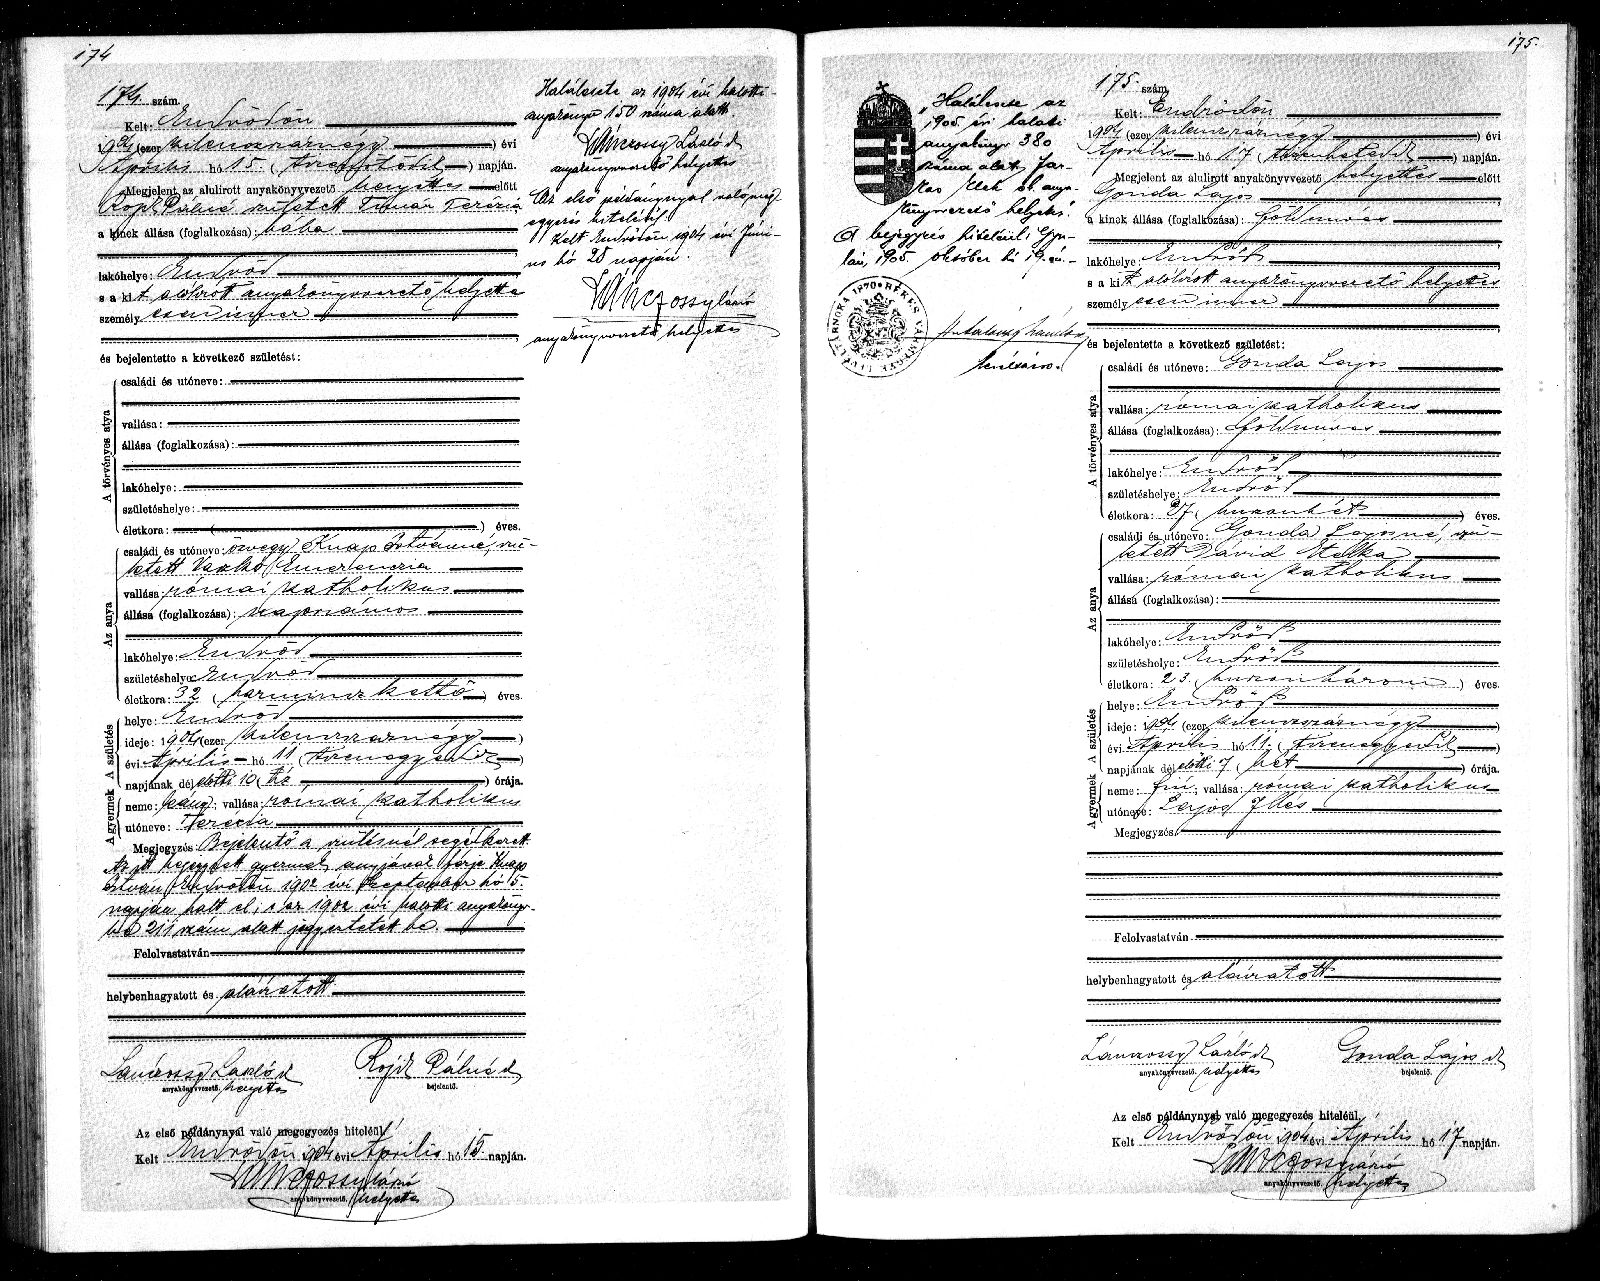 174
174. szám.
Kelt: Endrődön
1904 (ezer kilencszáznégy) évi
Április hó 15. (tizenötödik) napján.
Megjelent az alulirott anyakönyvvezető helyettes előtt
Pálné született Timár Terézia
a kinek állása (foglalkozása): bába
lakóhelye: Endrőd
s a kit alólirott anyakönyvvezető helyettes
személyesen ismer
és bejelentette a következő születést:
A törvényes atya
családi és utóneve:
vallása:
állása (foglalkozása):
lakóhelye:
születéshelye:
életkora: ( ) éves.
Az anya
családi és utóneve: özvegy Knap Istvánné, szü-
letett Vaszkó Emerenczia
vallása: római katholikus
állása (foglalkozása): napszámos
lakóhelye: Endrőd
születéshelye: Endrőd
életkora: 32 (harminczkettő) éves.
A születés
helye: Endrőd
ideje: 1904 (ezer kilencszáznégy)
évi Április hó 11 (tizenegyedik)
napjának dél előtti 10 (tíz) órája.
A gyermek
neme: leány; vallása: római katholikus
utóneve: Terézia
Megjegyzés: Bejelentő a szülésnél segédkezett.
Az itt bejegyzett gyermek anyjának férje Knap
István Endrődön 1902 évi Szeptember hó 5.
napján halt el, s az 1902 évi halotti anyakönyv-
be 211 szám alatt jegyeztetett be.
Felolvastatván
helybenhagyatott és aláiratott
Lánczossy László
anyakönyvvezető. helyettes
Pálné
bejelentő.
Az első példánynyal való megegyezés hiteléül.
Kelt Endrődön 1904 évi Április hó 15 napján.
Lánczossy László
anyakönyvvezető. helyettes
Halálesete az 1904 évi halotti
anyakönyv 150 száma alatt.
Lánczossy László
anyakönyvvezető helyettes
Az első példánynyal való meg-
egyezés hiteléül.
Kelt Endrődön 1904 évi Juni-
us hó 28 napján.
Lánczossy László
anyakönyvvezető helyettes
175.
"Halálesete az
1905. évi halotti
anyakönyv 380
száma alatt. Far-
kas Elek sk. anya-
könyvvezető helyettes."
A bejegyzés hiteléül: Gyu-
lán, 1905. október hó 19-én.
BÉKÉS VÁRMEGYE LEVÉLTÁRNOKA 1870
levéltáros.
175. szám
Kelt: Endrődön
1904 (ezer kilencszáznégy) évi
Április hó 17 (tizenhetedik) napján.
Megjelent az alulirott anyakönyvvezető helyettes előtt
Gonda Lajos
a kinek állása (foglalkozása): földmüves
lakóhelye: Endrőd
s a kit alólirott anyakönyvvezető helyettes
személyesen ismer
és bejelentette a következő születést:
A törvényes atya
családi és utóneve: Gonda Lajos
vallása: római katholikus
állása (foglalkozása): földmüves
lakóhelye: Endrőd
születéshelye: Endrőd
életkora: 27 (huszonhét) éves.
Az anya
családi és utóneve: Gonda Lajosné, szü-
letett Dávid Etelka
vallása: római katholikus
állása (foglalkozása):
lakóhelye: Endrőd
születéshelye: Endrőd
életkora: 23. (huszonhárom) éves.
A születés
helye: Endrőd
ideje: 1904 (ezer kilencszáznégy)
évi Április hó 11. (tizenegyedik)
napjának dél előtti 7 (hét) órája.
A gyermek
neme: fiu; vallása: római katholikus
utóneve: Lajos Illés
Megjegyzés:
Felolvastatván
helybenhagyatott és aláiratott
Lánczossy László
anyakönyvvezető. helyettes
Gonda Lajos
bejelentő.
Az első példánynyal való megegyezés hiteléül.
Kelt Endrődön 1904 évi Április hó 17 napján.
Lánczossy László
anyakönyvvezető. helyettes